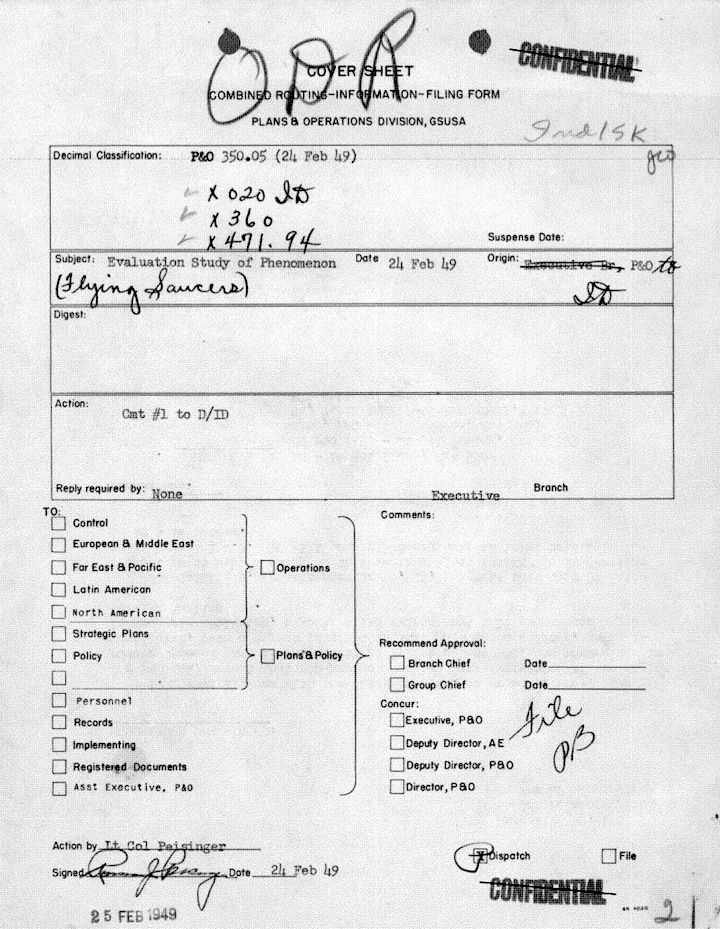 ODR
CONFIDENTIAL
COVER SHEET
COMBINED ROUTING-INFORMATION-FILING FORM
PLANS & OPERATIONS DIVISION, GSUSA
Decimal Classification: P&O 350.05 (24 Feb 49)
X 020 ID
X 360
X 471.94
Suspense Date:
Subject: Evaluation Study of Phenomenon Date 24 Feb 49 Origin: Executive Br, P&O to
(Flying Saucers) ID
Digest:
Action:
Cmt #1 to D/ID
Reply required by: None Executive Branch
TO:
Control
European & Middle East
Far East & Pacific
Latin American
North American
Strategic Plans
Policy
Personnel
Records
Implementing
Registered Documents
Asst Executive, P&O
Operations
Plans & Policy
Comments:
Recommend Approval:
Branch Chief Date
Group Chief Date
Concur:
Executive, P&O
Deputy Director, AE
Deputy Director, P&O
Director, P&O
File
PB
Action by Lt Col Peisinger
Signed Date 24 Feb 49
X Dispatch File
CONFIDENTIAL
25 FEB 1949
21